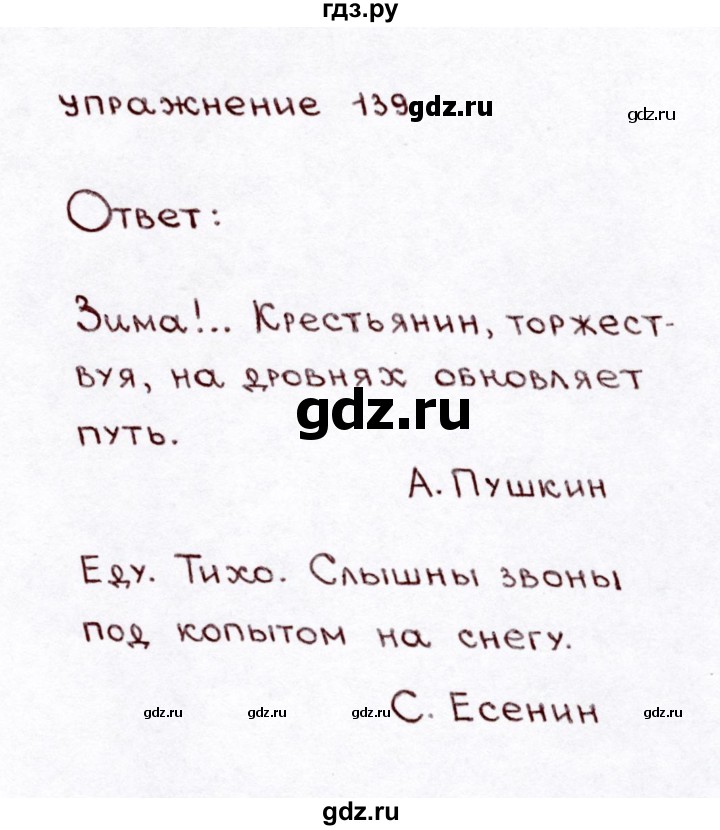 гдз.ру
упражнение 139 gdz.ru
gdz.ru
Ответ:
Зима!.. Крестьянин, торжест-
вуя, на дровнях обновляет
gdz.ru
путь.
А. Пушкин
Еду. Тихо. Слышны звоны
под копытом на снегу.
gdz.ru gdz.ru gdz.ru С. Есенин gdz.ru
gdz.ru